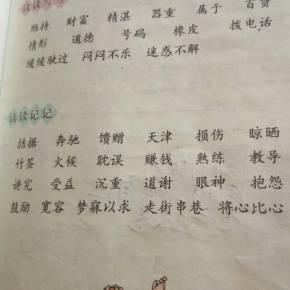 维持 财富 精湛 器重 属于
情形 道德 号码 橡皮 拨电话
缓缓驶过 闷闷不乐 迷惑不解
读读记记
拮据 奔驰 馈赠 天津 损伤 晾晒
竹签 火候 耽误 赚钱 熟练 教导
讲究 受益 沉重 道谢 眼神 抱怨
鼓励 宽容 梦寐以求 走街串巷 将心比心